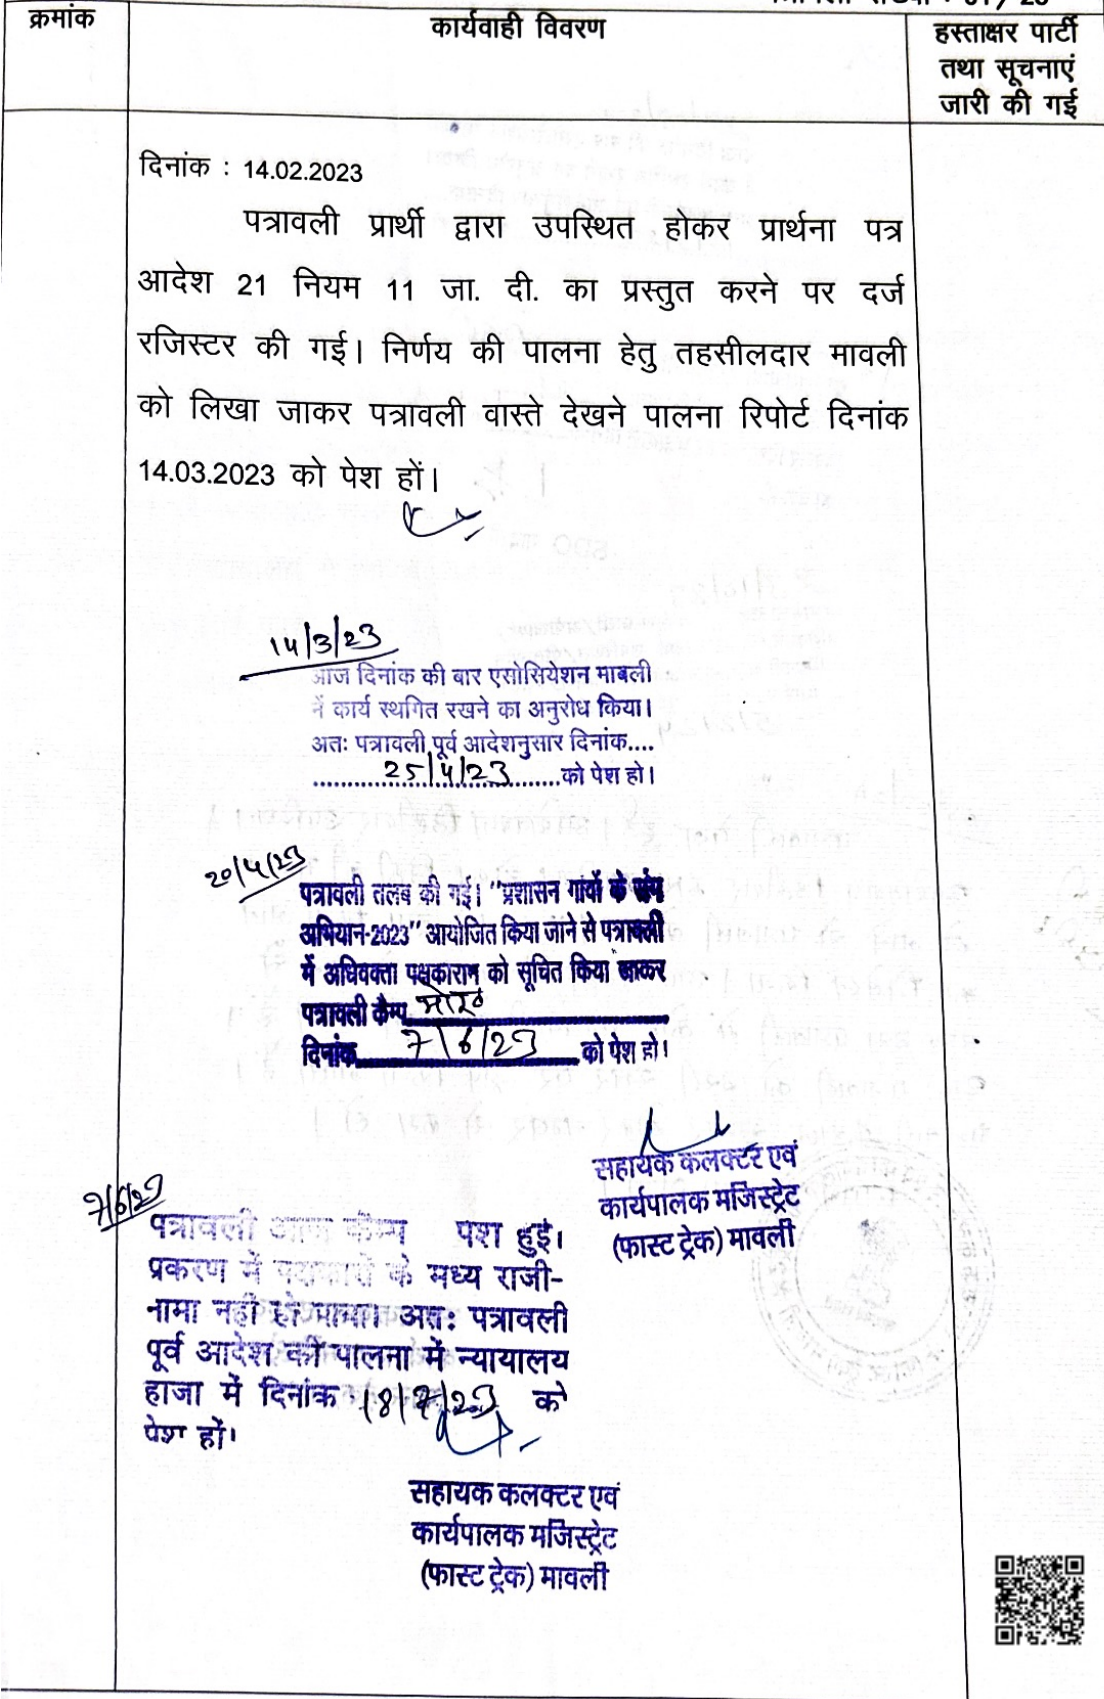 क्रमांक
कार्यवाही विवरण
हस्ताक्षर पार्टी
तथा सूचनाएं
जारी की गई
दिनांक : 14.02.2023
पत्रावली प्रार्थी द्वारा उपस्थित होकर प्रार्थना पत्र
आदेश 21 नियम 11 जा. दी. का प्रस्तुत करने पर दर्ज
रजिस्टर की गई। निर्णय की पालना हेतु तहसीलदार मावली
को लिखा जाकर पत्रावली वास्ते देखने पालना रिपोर्ट दिनांक
14.03.2023 को पेश हों।
14/3/23
आज दिनांक की बार एसोसियेशन माबली
में कार्य स्थगित रखने का अनुरोध किया।
अतः पत्रावली पूर्व आदेशनुसार दिनांक....
25/4/23 को पेश हो।
20/4/23
पत्रावली तलब की गई। "प्रशासन गांवों के संग
अभियान-2023" आयोजित किया जाने से पत्रावली
में अधिवक्ता पक्षकारान को सूचित किया जाकर
पत्रावली कैम्प
दिनांक 7/6/23 को पेश हो।
सहायक कलक्टर एवं
कार्यपालक मजिस्ट्रेट
(फास्ट ट्रेक) मावली
7/6/23
पत्रावली आज कैम्प पेश हुई।
प्रकरण में पक्षकारों के मध्य राजी-
नामा नहीं हो पाया। अतः पत्रावली
पूर्व आदेश की पालना में न्यायालय
हाजा में दिनांक 18/7/23 को
पेश हों।
सहायक कलक्टर एवं
कार्यपालक मजिस्ट्रेट
(फास्ट ट्रेक) मावली